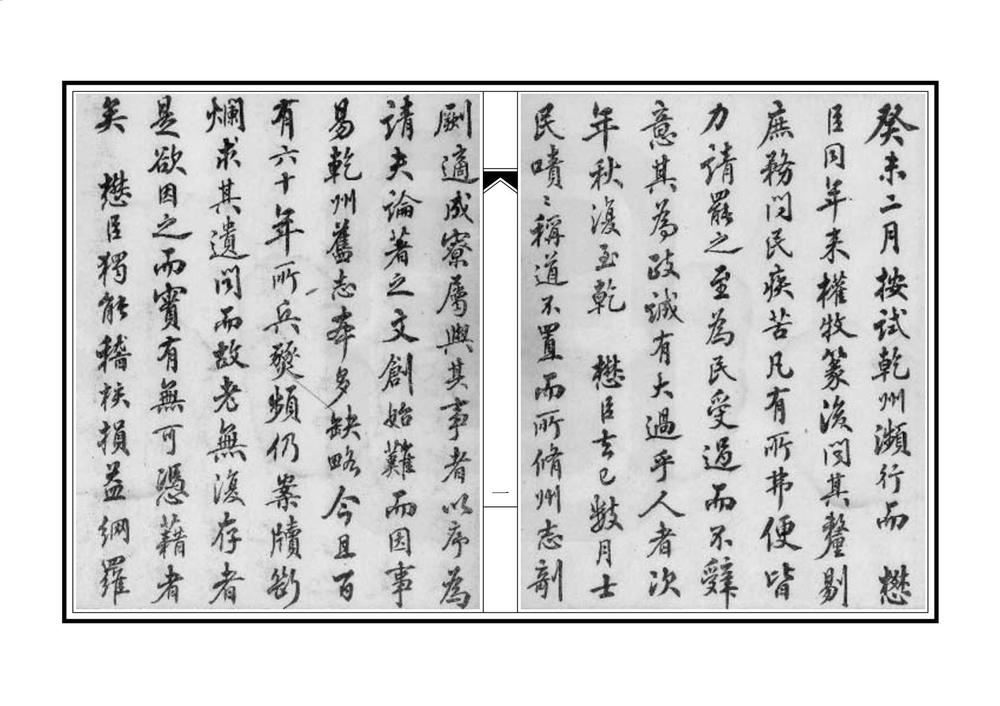 癸未二月按試乾州瀕行而 懋
臣同年来權牧篆後問其釐剔
庶務問民疾苦凡有所弗便皆
力請罷之至為民受過而不辭
意其為政誠有大過乎人者次
年秋復至乾 懋臣去已數月士
民嘖〻稱道不置而所脩州志剞
劂適成寮屬與其事者以序為
請夫論著之文創始難而因事
易乾州舊志本多缺略今且百
有六十年所兵燹頻仍案牘銷
爛求其遺聞而故老無復存者
是欲因之而實有無可憑藉者
矣 懋臣獨能稽核損益網羅
一